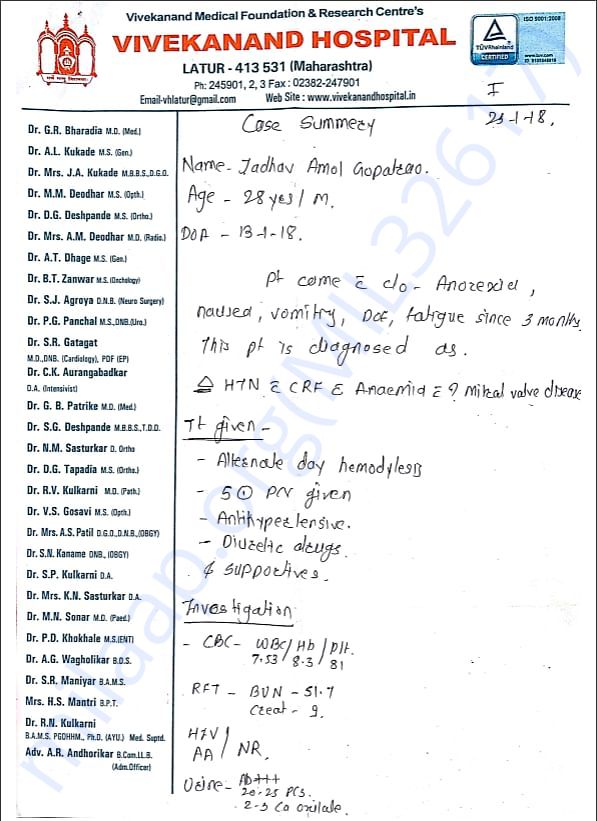 Vivekanand Medical Foundation & Research Centre's
VIVEKANAND HOSPITAL
LATUR - 413 531 (Maharashtra)
Ph: 245901, 2, 3 Fax : 02382-247901
Email-vhlatur@gmail.com Web Site : www.vivekanandhospital.in
TÜVRheinland
CERTIFIED
ISO 9001:2008
I
Case Summery 23-1-18.
Name - Jadhav Amol Gopalrao.
Age - 28 yrs / M.
DOA - 13-1-18.
Pt come c̄ c/o - Anorexia,
nausea, vomitry, DOE, fatigue since 3 months
This pt is diagnosed as.
△ HTN c̄ CRF c̄ Anaemia c̄ ? Mitral valve disease
Tt given -
- Alternate day hemodylesis
- 5 ① PCV given
- Antihypertensive.
- Diuretic drugs.
& supportives.
Investigation
- CBC - WBC / Hb / Plt.
7.53 / 8.3 / 81
RFT - BUN - 51.7
Creat - 9.
HIV / NR.
AA
Urine - Alb+++
20-25 PCs.
2-3 Ca oxilate.
Dr. G.R. Bharadia M.D. (Med.)
Dr. A.L. Kukade M.S. (Gen.)
Dr. Mrs. J.A. Kukade M.B.B.S.,D.G.O.
Dr. M.M. Deodhar M.S. (Opth.)
Dr. D.G. Deshpande M.S. (Ortho.)
Dr. Mrs. A.M. Deodhar M.D. (Radio.)
Dr. A.T. Dhage M.S. (Gen.)
Dr. B.T. Zanwar M.S. (Onchology)
Dr. S.J. Agroya D.N.B. (Neuro Surgery)
Dr. P.G. Panchal M.S.,DNB.(Uro.)
Dr. S.R. Gatagat
M.D.,DNB. (Cardiology), PDF (EP)
Dr. C.K. Aurangabadkar
D.A. (Intensivist)
Dr. G. B. Patrike M.D. (Med.)
Dr. S.G. Deshpande M.B.B.S.,T.D.D.
Dr. N.M. Sasturkar D. Ortho
Dr. D.G. Tapadia M.S. (Ortho.)
Dr. R.V. Kulkarni M.D. (Path.)
Dr. V.S. Gosavi M.S. (Opth.)
Dr. Mrs. A.S. Patil D.G.O.,D.N.B.,(OBGY)
Dr. S.N. Kaname DNB., (OBGY)
Dr. S.P. Kulkarni D.A.
Dr. Mrs. K.N. Sasturkar D.A.
Dr. M.N. Sonar M.D. (Paed.)
Dr. P.D. Khokhale M.S.(ENT)
Dr. A.G. Wagholikar B.D.S.
Dr. S.R. Maniyar B.A.M.S.
Mrs. H.S. Mantri B.P.T.
Dr. R.N. Kulkarni
B.A.M.S. PGDHHM., Ph.D. (AYU.) Med. Suptd.
Adv. A.R. Andhorikar B.Com.LL.B.
(Adm.Officer)
milaap.org(MIL326177)